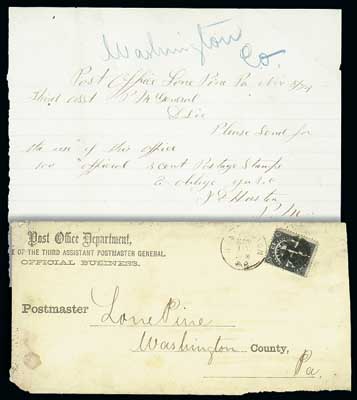 Washington
Co.
Post Office Lone Pine Pa Nov
Third Asst P M General
D Sir
Please send for
the use of this office
100 official 3 cent Postage Stamps
& oblige yours
Huston
P. M.
Post Office Department,
E OF THE THIRD ASSISTANT POSTMASTER GENERAL.
OFFICIAL BUSINESS.
Postmaster
Lone Pine
Washington County,
Pa.